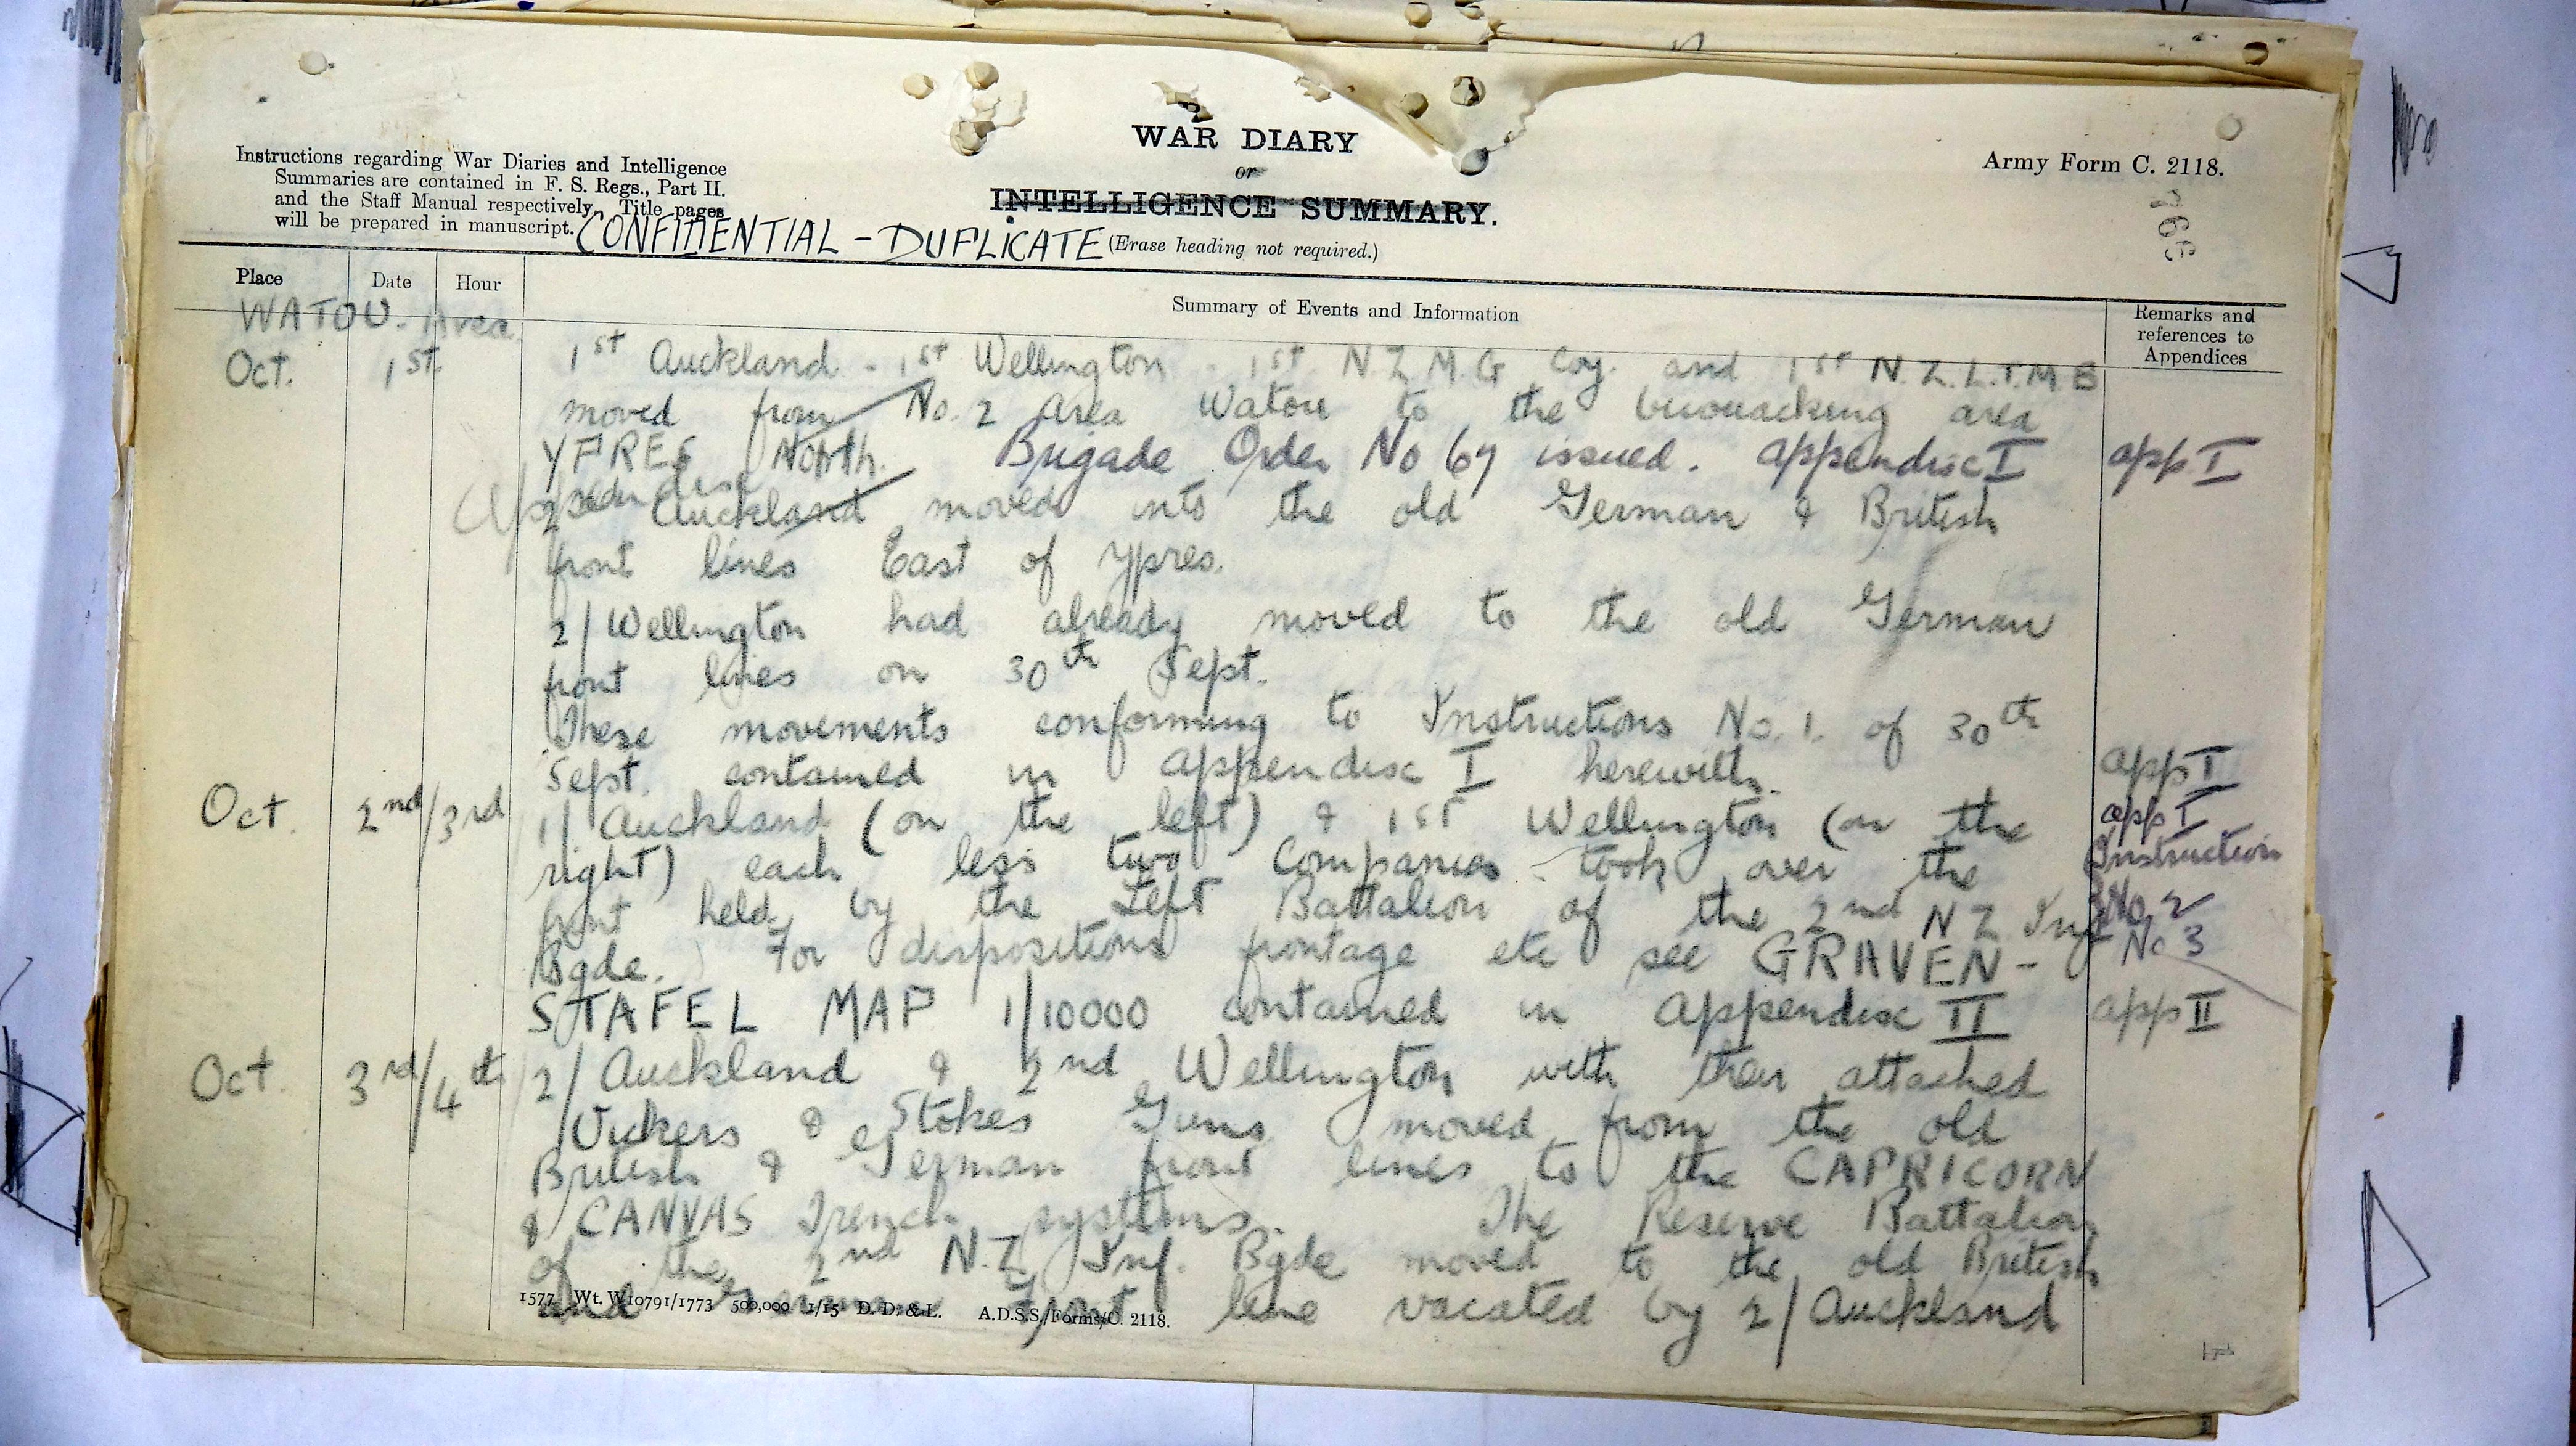 WAR DIARY
or
INTELLIGENCE SUMMARY.
(Erase heading not required.)
Instructions regarding War Diaries and Intelligence
Summaries are contained in F. S. Regs., Part II.
and the Staff Manual respectively. Title pages
will be prepared in manuscript.
CONFIDENTIAL - DUPLICATE
Army Form C. 2118.
Place Date Hour Summary of Events and Information Remarks and
references to
Appendices
WATOU - Area
Oct. 1st. 1st Auckland - 1st Wellington - 1st N.Z M.G Coy. and 1st N.Z.L.T.M.B
moved from No. 2 Area Watou to the bivouacking area
YPRES North. Brigade Order No 67 issued. Appendix I app I
2 Auckland moved into the old German & British
front lines East of Ypres.
2/Wellington had already moved to the old German
front lines on 30th Sept.
These movements conforming to Instructions No. 1. of 30th
Sept. contained in Appendix I herewith. app I
Oct. 2nd/3rd 1/Auckland (on the left) & 1st Wellington (on the app I
right) each less two Companies took over the Instruction
front held by the Left Battalion of the 2nd NZ Inf No. 2
Bgde. For dispositions frontage etc see GRAVEN- No 3
STAFEL MAP 1/10000 contained in Appendix II app II
Oct. 3rd/4th 2/Auckland & 2nd Wellington with their attached
Vickers & Stokes Guns moved from the old
British & German front lines to the CAPRICORN
& CANVAS Trench systems. The Reserve Battalion
of the 2nd N.Z Inf. Bgde moved to the old British
and German front line vacated by 2/Auckland
1577 Wt. W10791/1773 500,000 1/15 D. D. & L. A.D.S.S./Forms/C. 2118.